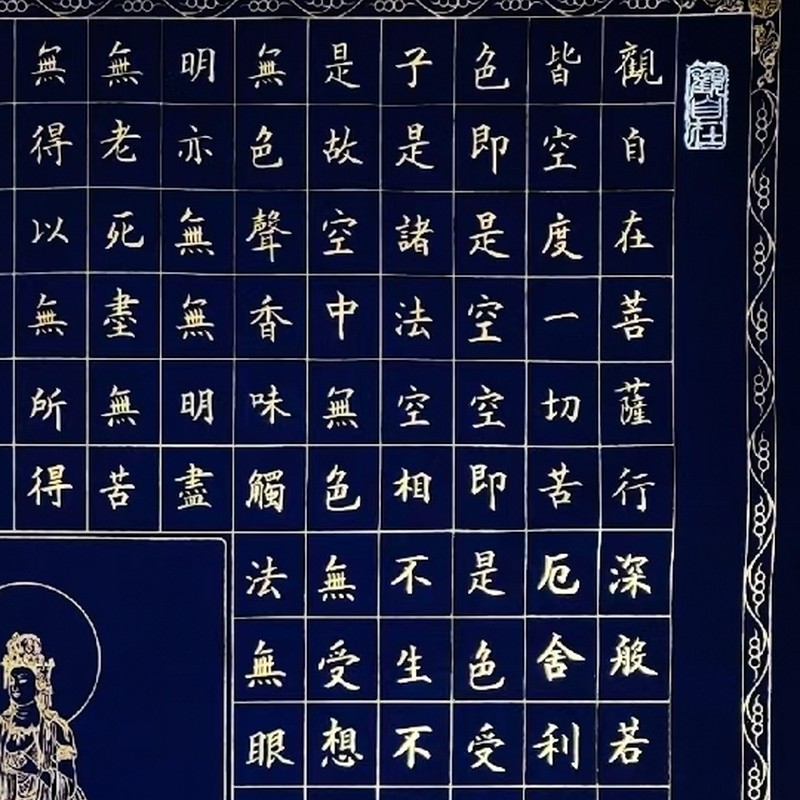 觀自在
觀自在菩薩行深般若
皆空度一切苦厄舍利
色即是空空即是色受
子是諸法空相不生不
是故空中無色無受想
無色聲香味觸法無眼
明亦無無明盡
無老死盡無苦
無得以無所得